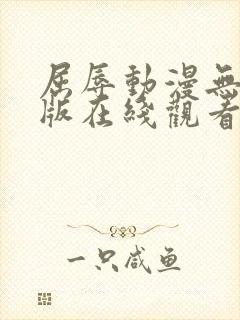 屈辱動漫無
版在綫觀看
一只咸鱼